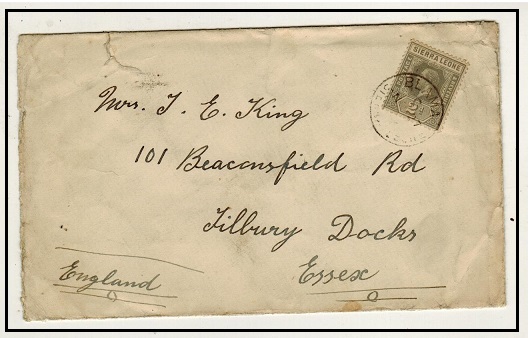 SIERRA LEONE
2
Mrs. J. E. King
101 Beaconsfield Rd
Tilbury Docks
Essex
England